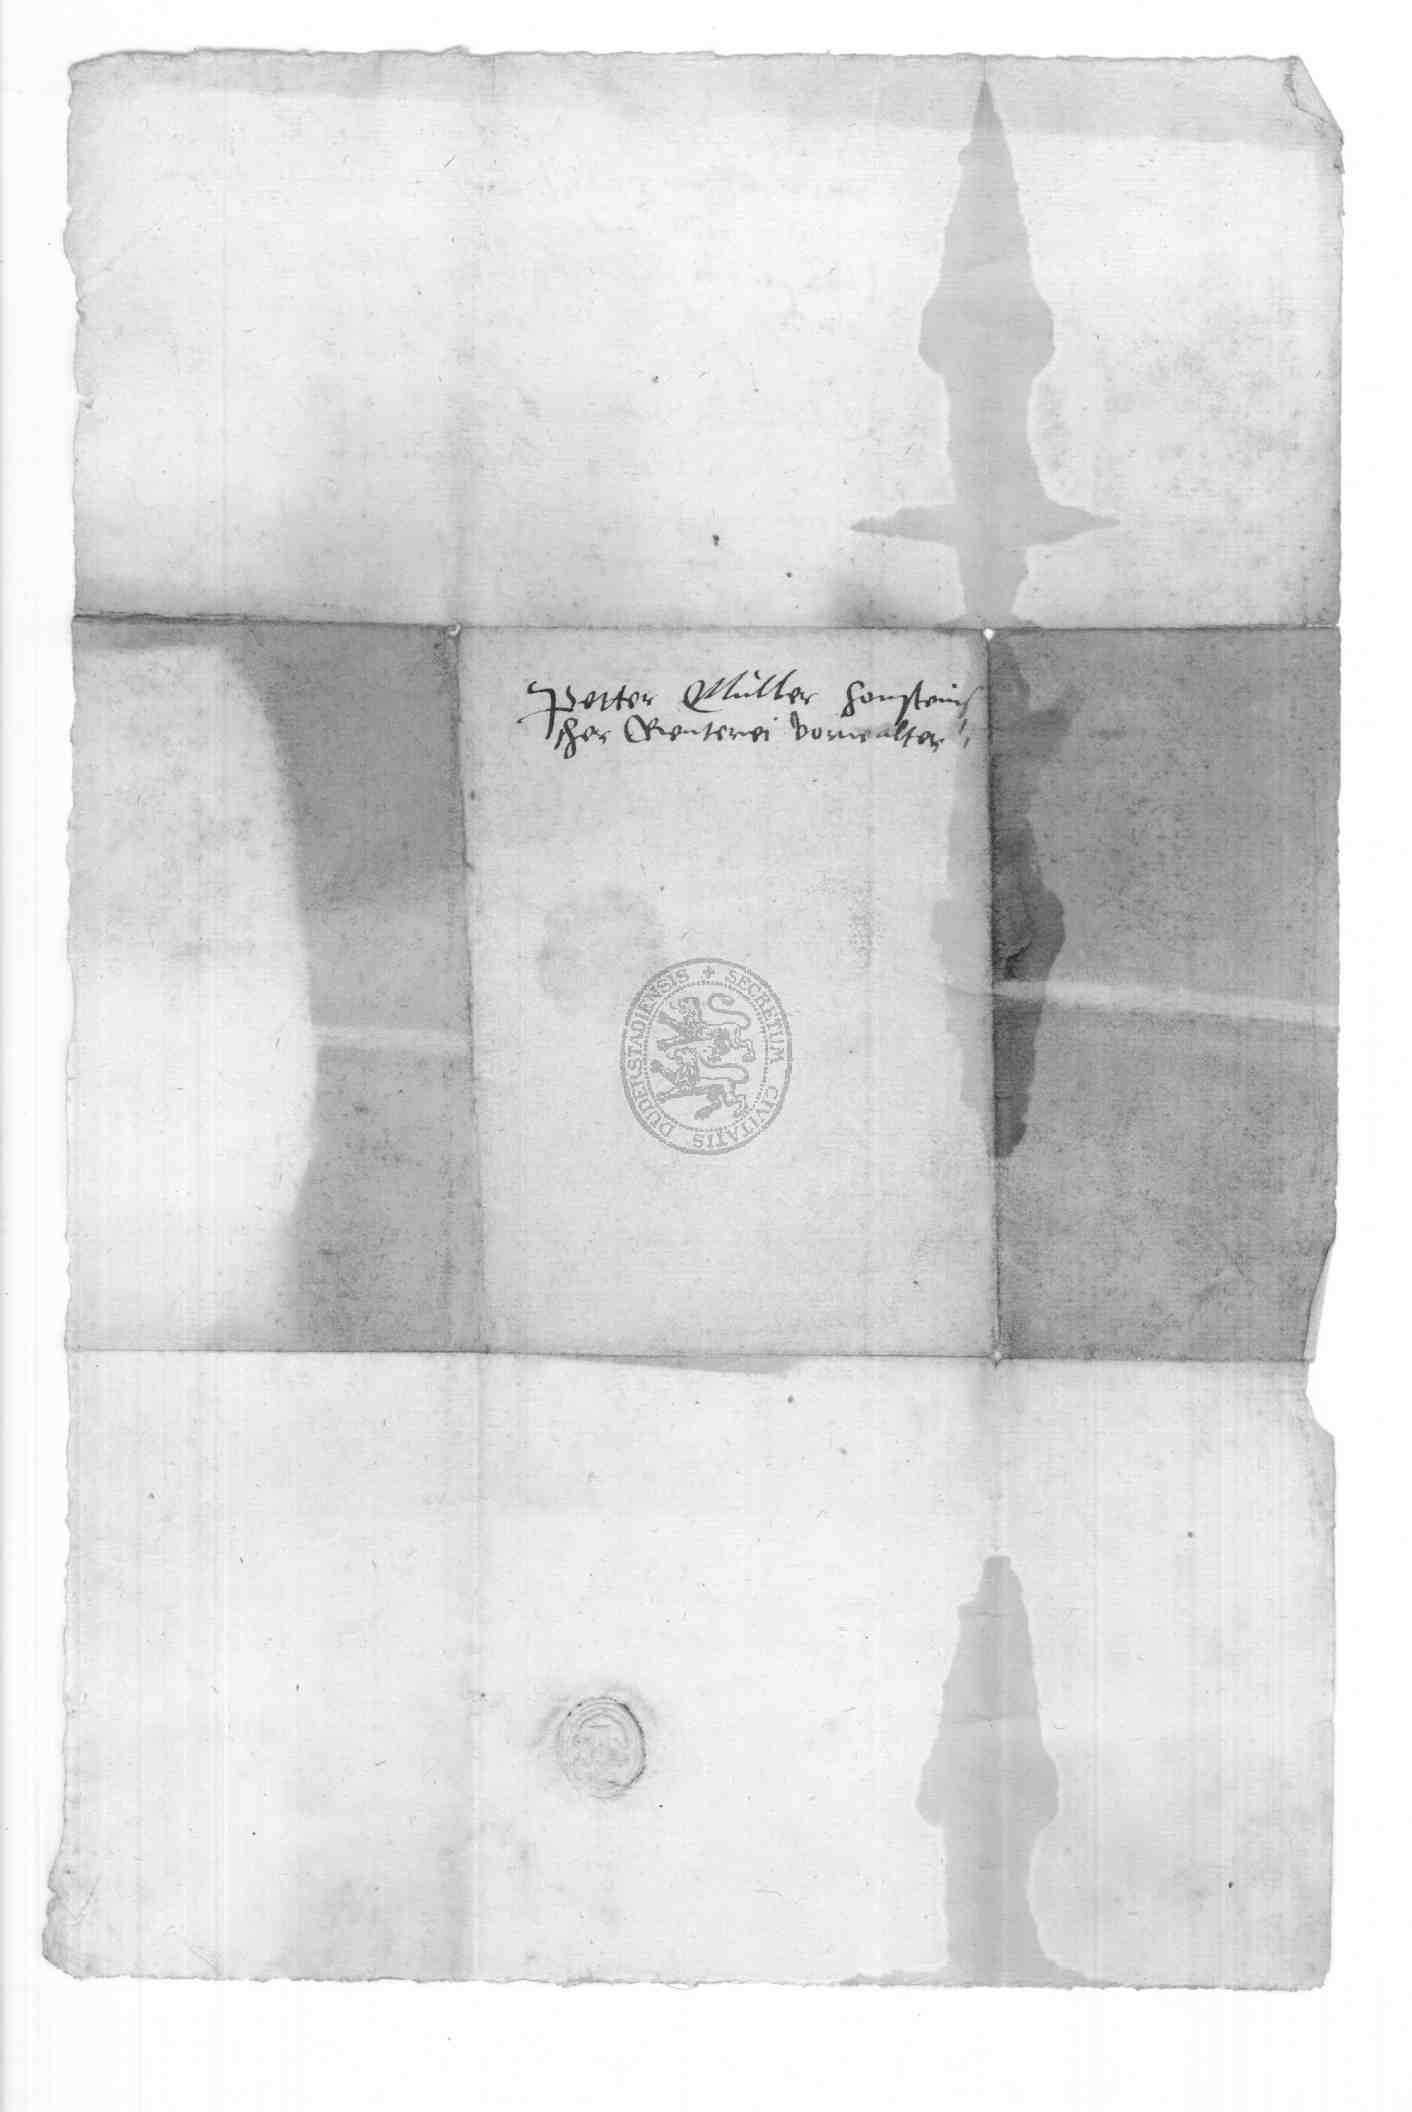 Petter Müller honsteinis
cher Renterei vorwalter
SECRETUM CIVITATIS DUDERSTADIENSIS